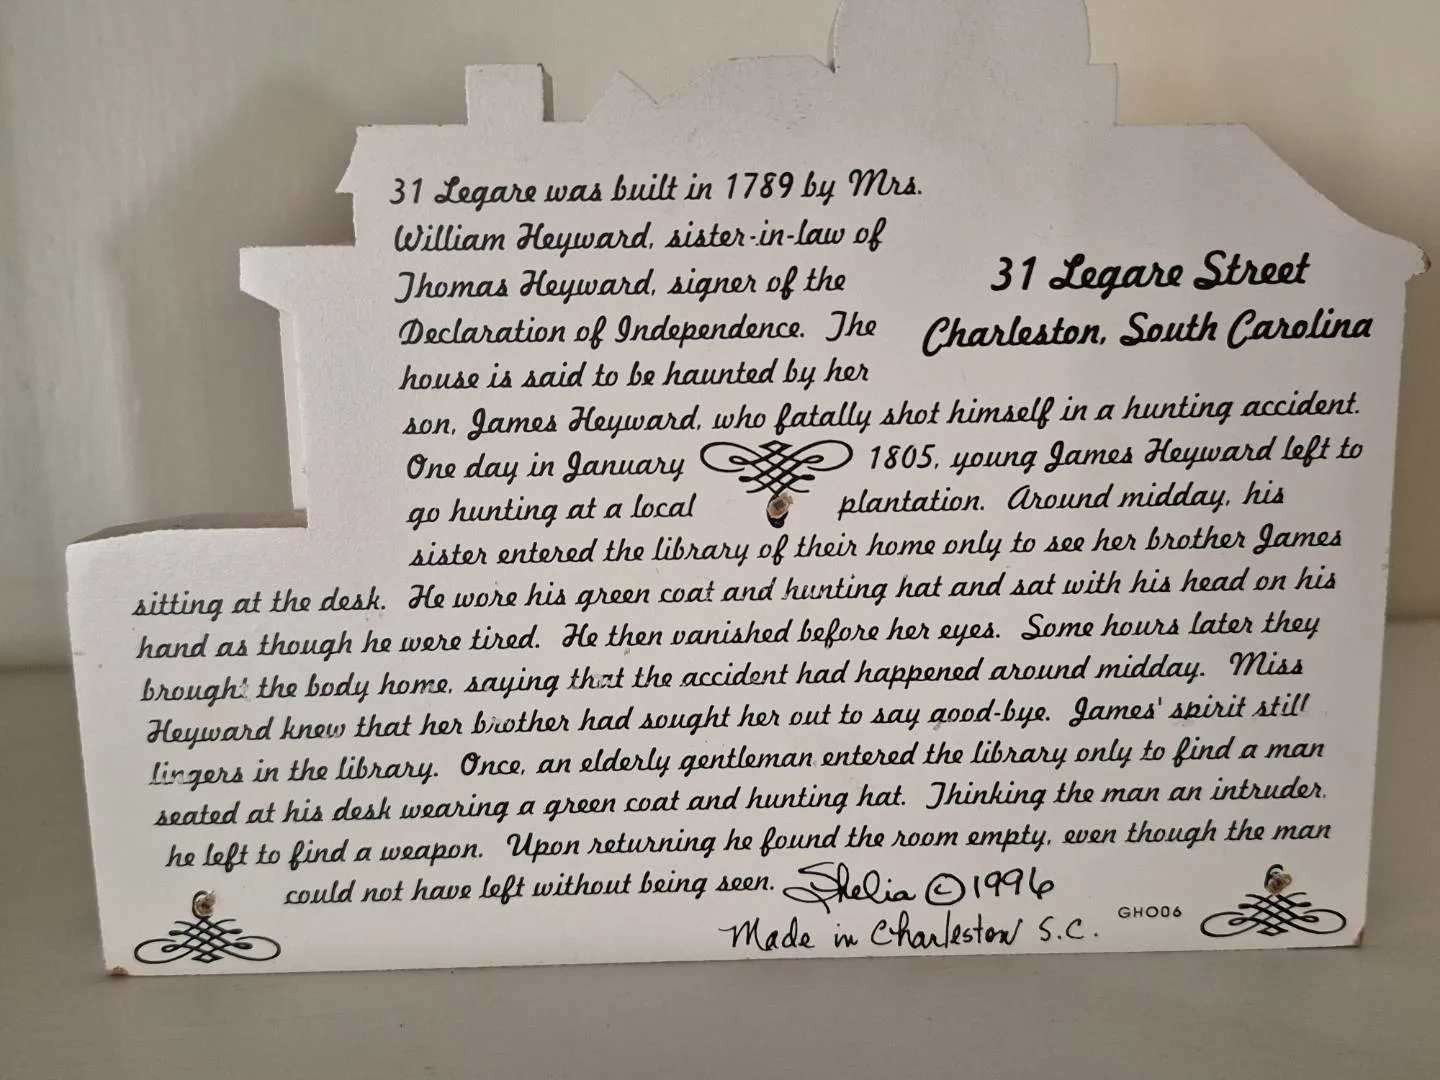 31 Legare was built in 1789 by Mrs.
William Heyward, sister-in-law of
Thomas Heyward, signer of the
Declaration of Independence. The
house is said to be haunted by her
31 Legare Street
Charleston, South Carolina
son, James Heyward, who fatally shot himself in a hunting accident.
One day in January 1805, young James Heyward left to
go hunting at a local plantation. Around midday, his
sister entered the library of their home only to see her brother James
sitting at the desk. He wore his green coat and hunting hat and sat with his head on his
hand as though he were tired. He then vanished before her eyes. Some hours later they
brought the body home, saying that the accident had happened around midday. Miss
Heyward knew that her brother had sought her out to say good-bye. James' spirit still
lingers in the library. Once, an elderly gentleman entered the library only to find a man
seated at his desk wearing a green coat and hunting hat. Thinking the man an intruder,
he left to find a weapon. Upon returning he found the room empty, even though the man
could not have left without being seen. Shelia © 1996
Made in Charleston S.C. GHO06